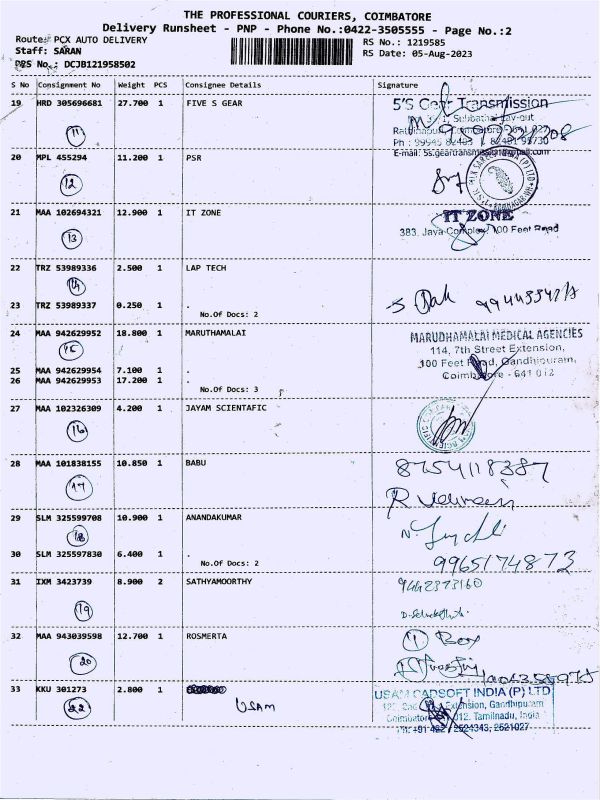 THE PROFESSIONAL COURIERS, COIMBATORE
Delivery Runsheet - PNP - Phone No.:0422-3505555 - Page No.:2
Route: PCX AUTO DELIVERY
RS No.: 1219585
Staff: SARAN
RS Date: 05-Aug-2023
DRS No.: DCJB121958502
S No Consignment No Weight PCS Consignee Details Signature
19 HRD 305696681 27.700 1 FIVE S GEAR
5'S Gear Transmission
11
20 MPL 455294 11.200 1 PSR
12
21 MAA 102694321 12.900 1 IT ZONE
IT ZONE
13
383, Jaya Complex, 100 Feet Road
22 TRZ 53989336 2.500 1 LAP TECH
14
23 TRZ 53989337 0.250 1 .
No.Of Docs: 2
24 MAA 942629952 18.800 1 MARUTHAMALAI
MARUDHAMALAI MEDICAL AGENCIES
15
114, 7th Street Extension,
100 Feet Road, Gandhipuram,
25 MAA 942629954 7.100 1 .
Coimbatore - 641 012
26 MAA 942629953 17.200 1 .
No.Of Docs: 3
27 MAA 102326309 4.200 1 JAYAM SCIENTAFIC
16
28 MAA 101838155 10.850 1 BABU
8754118387
17
29 SLM 325599708 10.900 1 ANANDAKUMAR
18
30 SLM 325597830 6.400 1 .
No.Of Docs: 2
9965174873
31 IXM 3423739 8.900 2 SATHYAMOORTHY
9442373160
19
32 MAA 943039598 12.700 1 ROSMERTA
1 Box
20
33 KKU 301273 2.800 1
USAM
22
USAM CADSOFT INDIA (P) LTD
Extension, Gandhipuram
Coimbatore 012. Tamilnadu, India
Ph: +91 422 2524343, 2521027